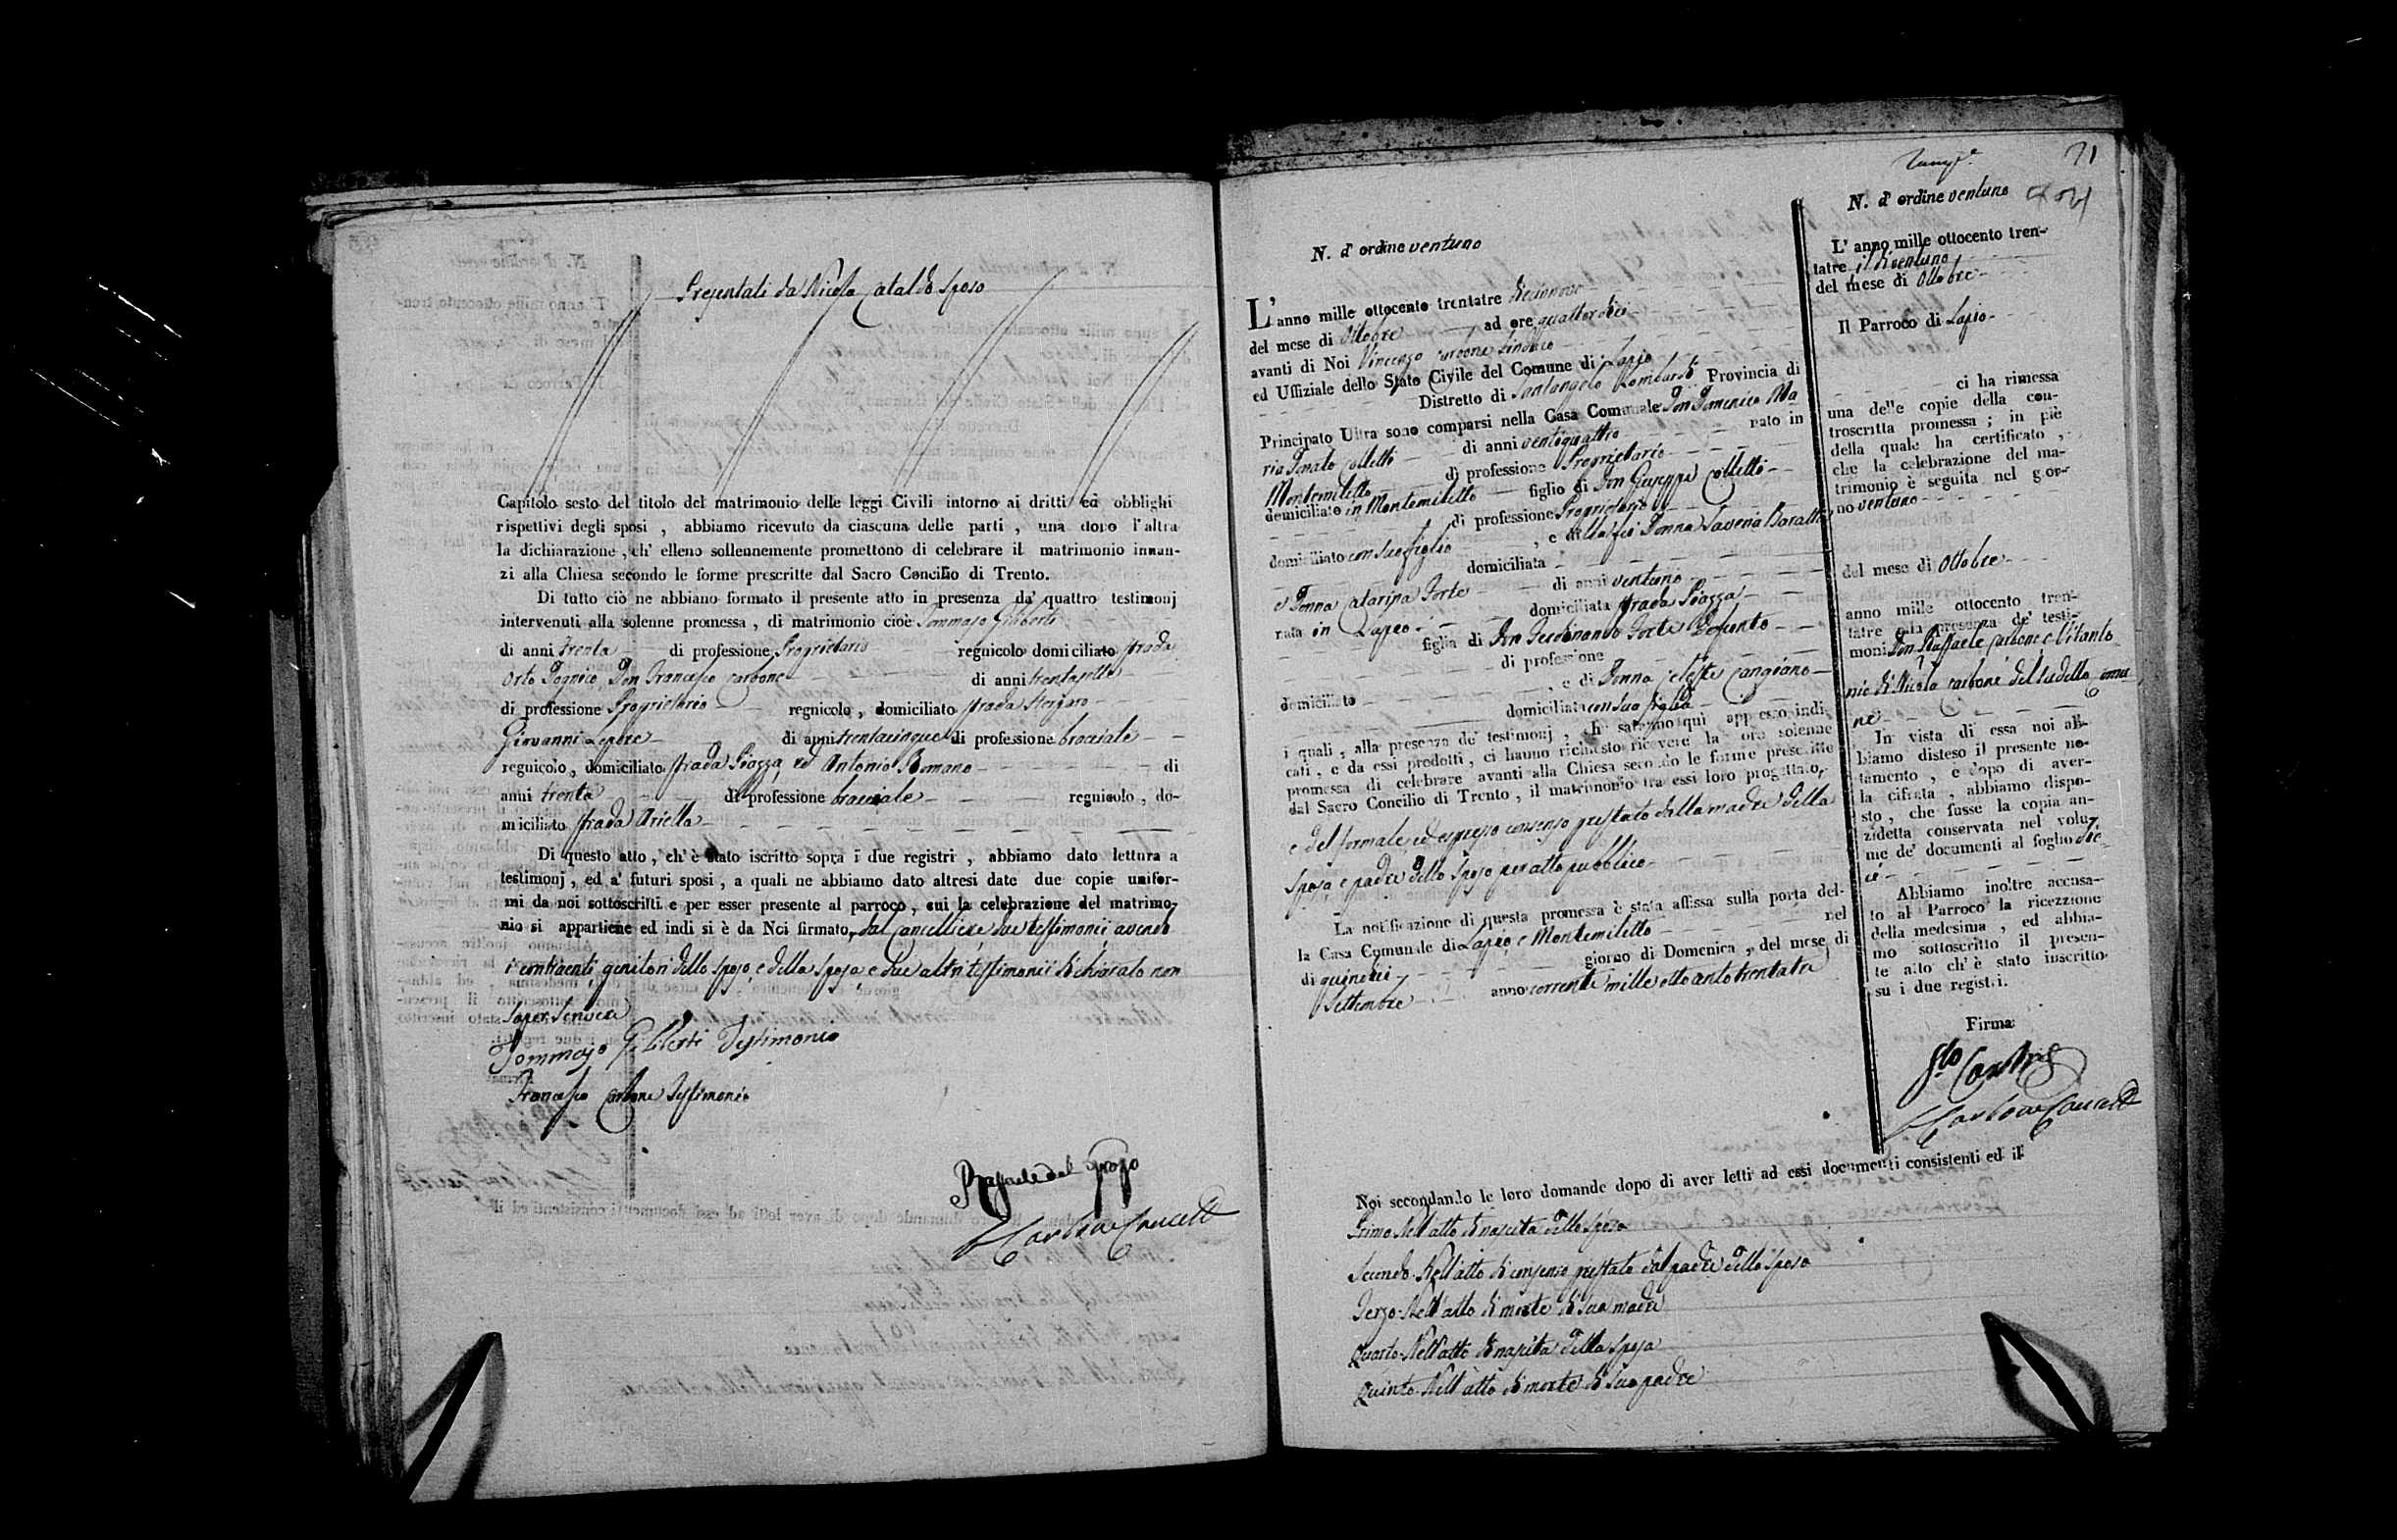 Presentati da Nicola Cataldo Sposo
Capitolo sesto del titolo del matrimonio delle leggi Civili intorno ai dritti ed obblighi
rispettivi degli sposi , abbiamo ricevuto da ciascuna delle parti , una dopo l'altra
la dichiarazione , ch' elleno sollennemente promettono di celebrare il matrimonio innan-
zi alla Chiesa secondo le forme prescritte dal Sacro Concilio di Trento.
Di tutto ciò ne abbiano formato il presente atto in presenza da' quattro testimonj
intervenuti alla solenne promessa , di matrimonio cioè Tommaso Giliberti
di anni trenta di professione Proprietario regnicolo domiciliato strada
Orto Don Francesco Carbone di anni trentasette
di professione Proprietario regnicolo , domiciliato strada
Giovanni Lepore di anni trentacinque di professione bracciale
regnicolo , domiciliato strada Piazza, ed Antonio Romano di
anni trenta di professione bracciale regnicolo , do-
miciliato strada Ariella
Di questo atto , ch' è stato iscritto sopra i due registri , abbiamo dato lettura a
testimonj , ed a' futuri sposi , a quali ne abbiamo dato altresì date due copie unifor-
mi da noi sottoscritti e per esser presente al parroco , cui la celebrazione del matrimo-
nio si appartiene ed indi si è da Noi firmato, dal Cancelliere, due testimonii avendo
i contraenti, genitori dello sposo, e della sposa, e due altri testimonii dichiarato non
saper scrivere
Tommaso Giliberti Testimonio
Francesco Carbone Testimonio
Raffaele del Grosso
Carbone Cancell
71
N. d' ordine ventuno
L' anno mille ottocento trentatre diecinove
del mese di Ottobre ad ore quattordici
avanti di Noi Vincenzo Carbone Sindaco
ed Uffiziale dello Stato Civile del Comune di Lapio
Distretto di Santangelo Lombardi Provincia di
Principato Ultra sono comparsi nella Casa Comunale Don Domenico Ma
ria Donato Colletti di anni ventiquattro nato in
Montemiletto di professione Proprietario
domiciliato in Montemiletto figlio di Don Giuseppe Colletti
di professione Proprietario
domiciliato con suo figlio , e della fu Donna Saveria
domiciliata
e Donna Catarina Forte di anni ventuno
nata in Lapio domiciliata strada Piazza
figlia di Don Ferdinando Forte Defunto
di professione
domiciliato , e di Donna Celeste Cangiano
domiciliata con sua figlia
i quali , alla presenza de' testimonj , che saranno qui appresso indi-
cati , e da essi prodotti , ci hanno richiesto ricevere la loro solenne
promessa di celebrare avanti alla Chiesa secondo le forme prescritte
dal Sacro Concilio di Trento , il matrimonio tra essi loro progettato,
e del formale ed espresso consenso prestato dalla madre della
sposa e padre dello sposo per atto pubblico
La notificazione di questa promessa è stata affissa sulla porta del-
la Casa Comunale di Lapio, e Montemiletto nel
di quindici giorno di Domenica , del mese di
Settembre anno corrente mille ottocento trentatre
N. d' ordine ventuno
L' anno mille ottocento tren-
tatre il di ventuno
del mese di Ottobre
Il Parroco di Lapio
ci ha rimessa
una delle copie della con-
troscritta promessa ; in piè
della quale ha certificato ,
che la celebrazione del ma-
trimonio è seguita nel gior-
no ventuno
del mese di Ottobre
anno mille ottocento tren-
tatre alla presenza de' testi-
moni Don Raffaele Carbone, e Vitanto
nio di Nicola Carbone del suddetto comu
ne
In vista di essa noi ab-
biamo disteso il presente no-
tamento , e dopo di aver-
la cifrata , abbiamo dispo-
sto , che fusse la copia an-
zidetta conservata nel volu-
me de' documenti al foglio die
ci
Abbiamo inoltre accusa-
to al Parroco la ricezzione
della medesima , ed abbia-
mo sottoscritto il presen-
te atto ch' è stato inscritto
su i due registri.
Firma
Carbone Cancell
Noi secondando le loro domande dopo di aver letti ad essi documenti consistenti ed il
Primo Nell'atto di nascita dello Sposo
Secondo Nell'atto di consenso prestato dal padre dello Sposo
Terzo Nell'atto di morte di sua madre
Quarto Nell'atto di nascita della Sposa
Quinto Nell'atto di morte di suo padre